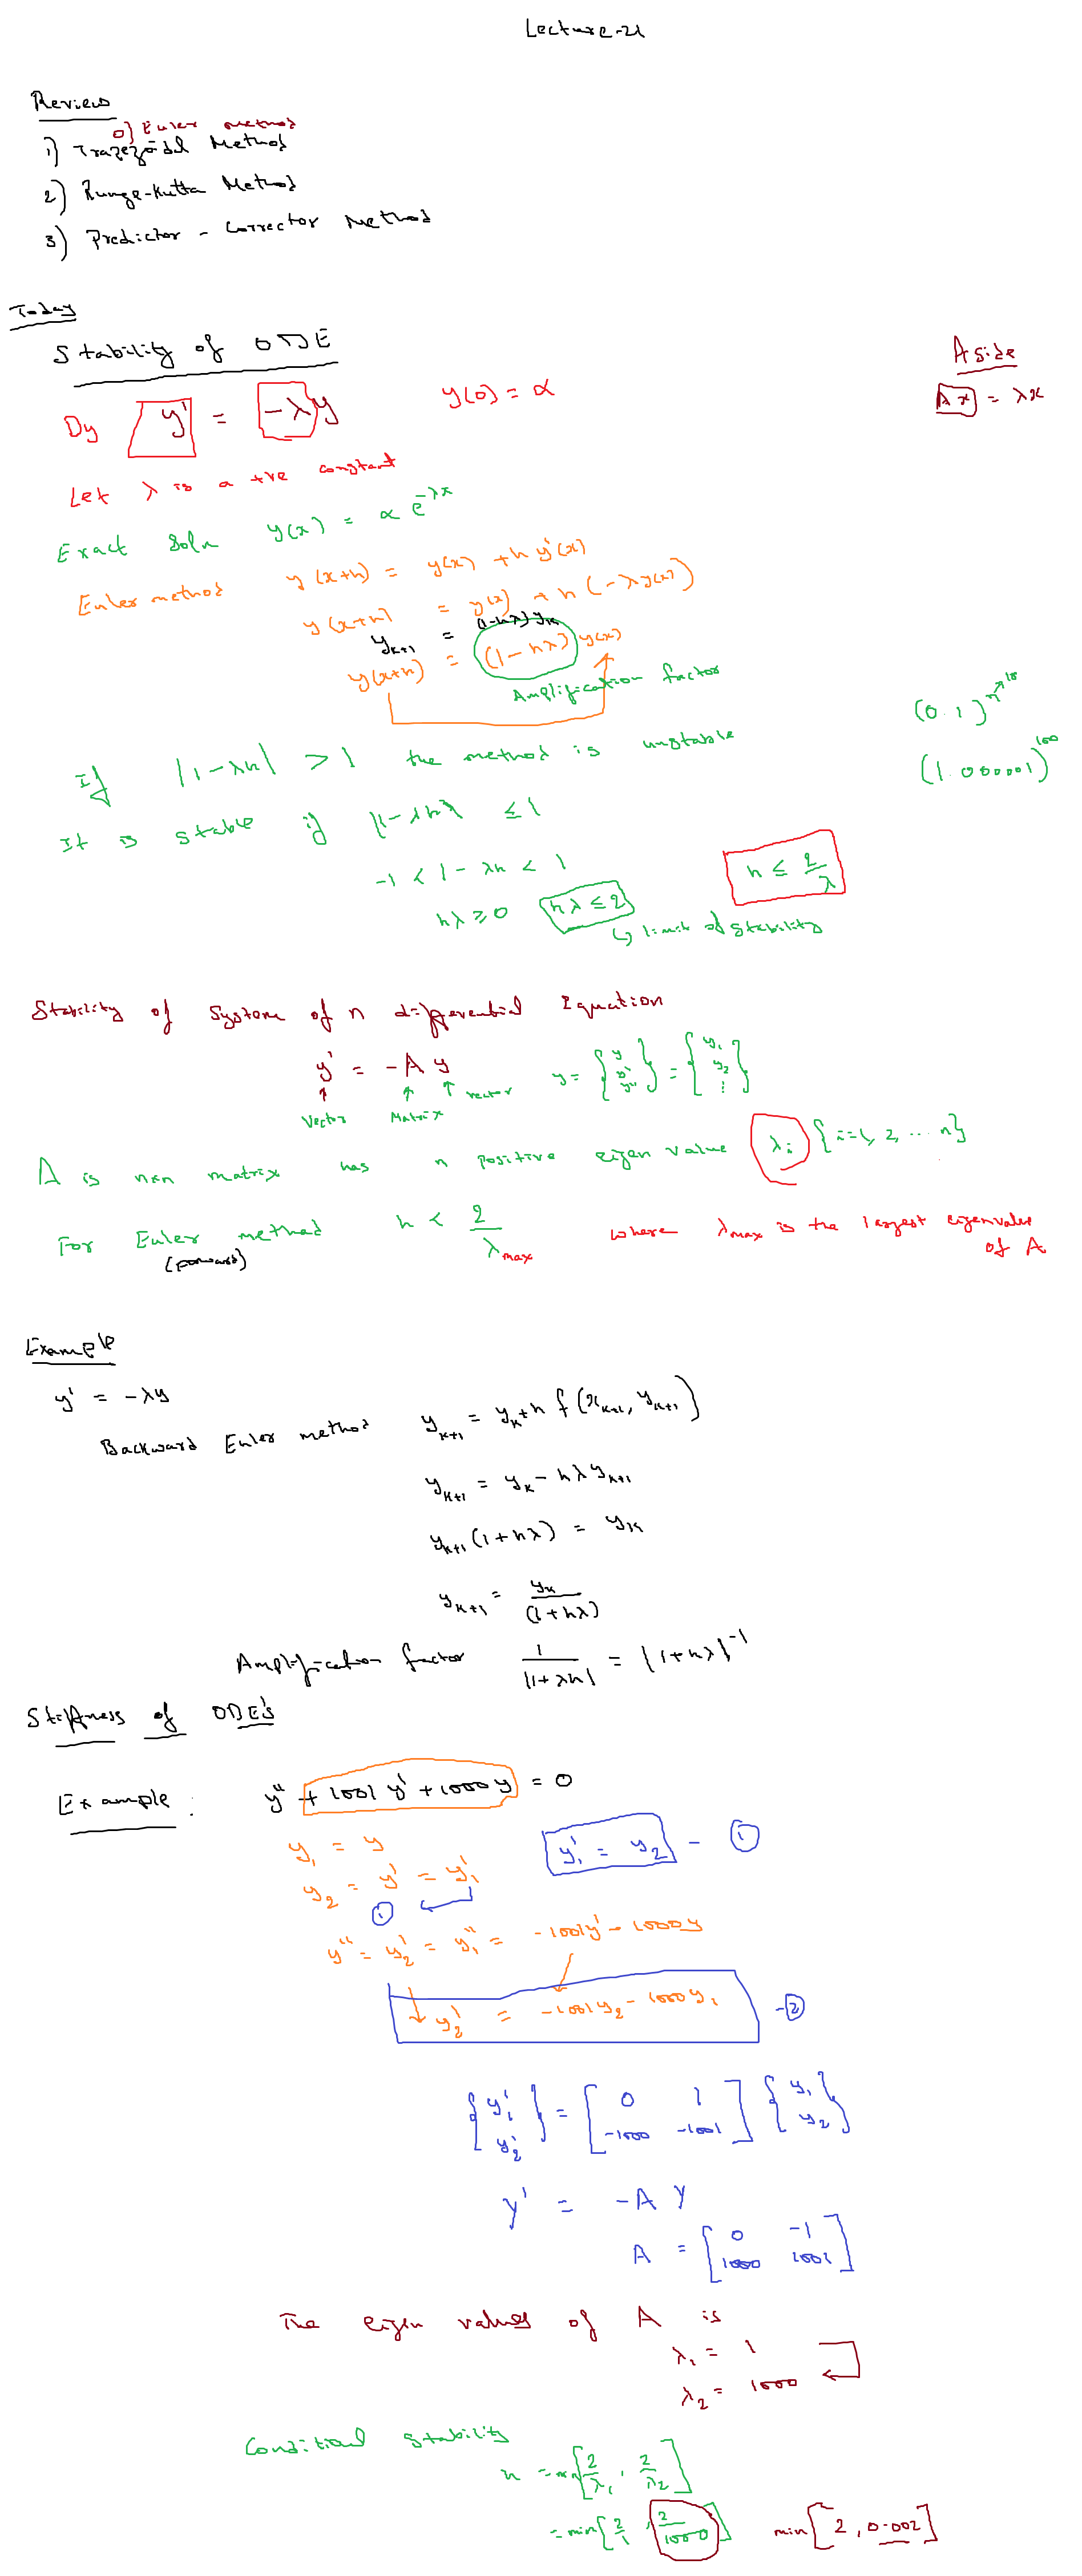 Lecture-21
Review
0) Euler method
1) Trapezoidal Method
2) Runge-Kutta Method
3) Predictor - Corrector Method
Today
Stability of ODE
Aside
Ax = λx
Dy y' = -λy y(0) = α
Let λ is a +ve constant
Exact Soln y(x) = α e^{-λx}
Euler method y(x+h) = y(x) + h y'(x)
y(x+h) = y(x) + h (-λy(x))
y_{k+1} = (1-hλ) y_k
y(x+h) = (1-hλ) y(x)
Amplification factor
If |1-λh| > 1 the method is unstable
(1.000001)^{100}
It is stable if |1-λh| ≤ 1
-1 < 1-λh < 1
h ≤ 2/λ
hλ ≥ 0 hλ ≤ 2
↳ limit of stability
Stability of System of n differential Equation
y' = -A y
↑ ↑ ↑ vector
Vector Matrix
y = {y y' y''} = {y_1 y_2 ⋮}
A is n×n matrix has n positive eigen value λ_i {i=1, 2, ... n}
For Euler method h < 2/λ_max where λ_max is the largest eigenvalue of A
(forward)
Example
y' = -λy
Backward Euler method y_{k+1} = y_k + h f(x_{k+1}, y_{k+1})
y_{k+1} = y_k - hλy_{k+1}
y_{k+1} (1+hλ) = y_k
y_{k+1} = y_k/(1+hλ)
Amplification factor 1/|1+λh| = |1+hλ|^{-1}
Stiffness of ODE's
Example: y'' + 1001 y' + 1000y = 0
y_1 = y
y_1' = y_2 - ①
y_2 = y' = y_1'
①
y'' = y_2' = y_1'' = -1001y' - 1000y
↓ y_2' = -1001y_2 - 1000y_1 - ②
{y_1' y_2'} = [0 1 -1000 -1001] {y_1 y_2}
y' = -A y
A = [0 -1 1000 1001]
The eigen values of A is
λ_1 = 1
λ_2 = 1000
Conditional stability
h = min[2/λ_1, 2/λ_2]
= min[2/1, 2/1000] min[2, 0.002]